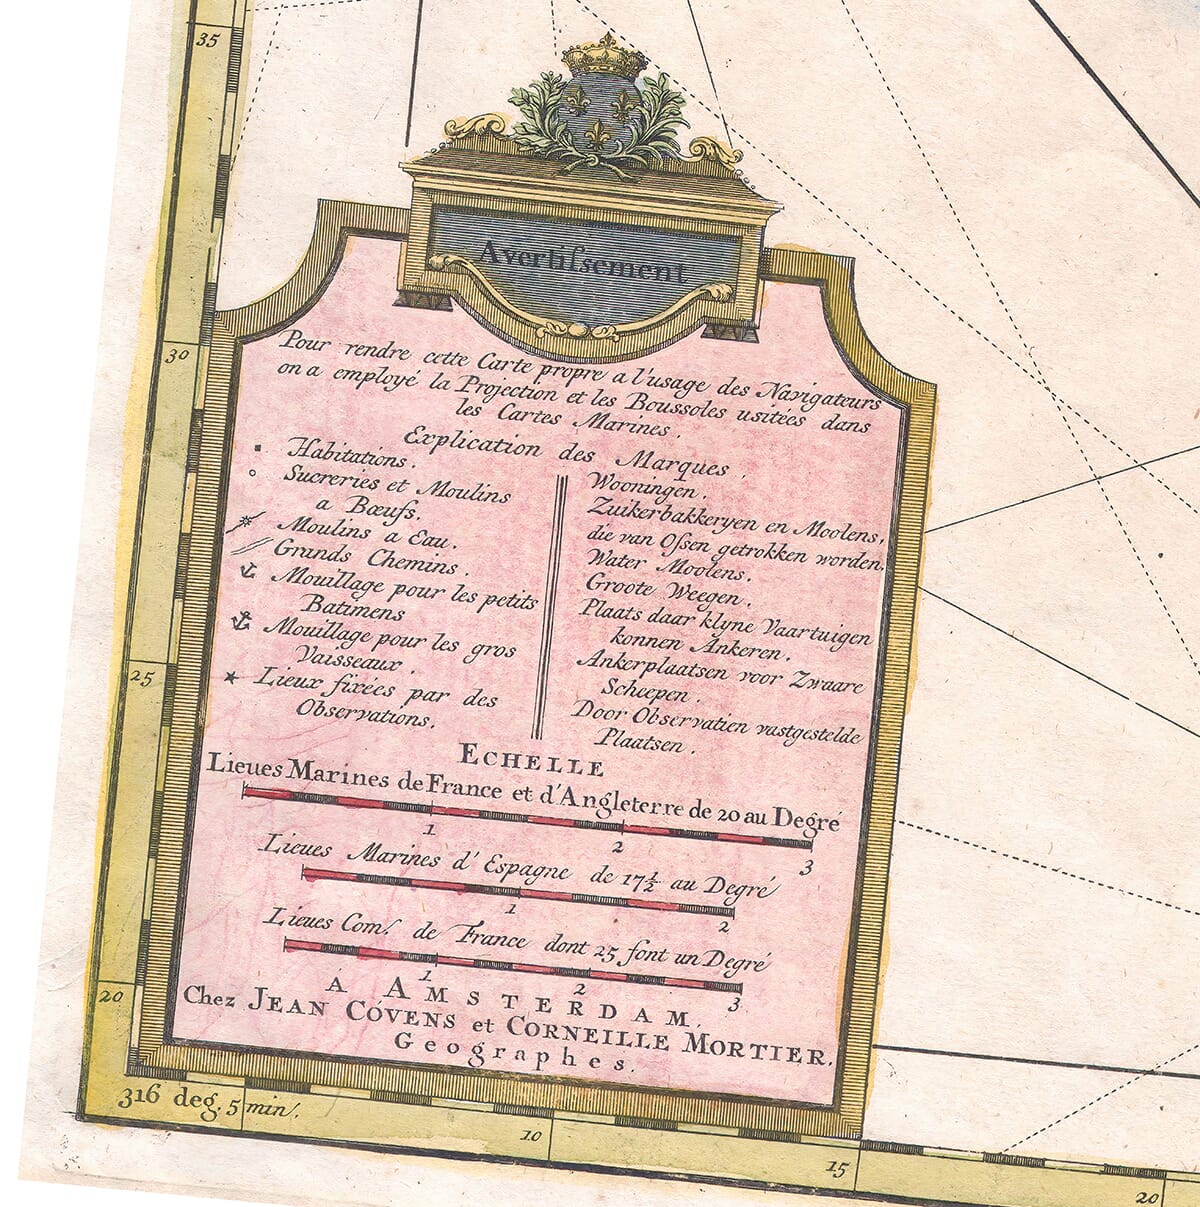 35
Avertiſsement
Pour rendre cette Carte propre a l'usage des Navigateurs
on a employé la Projection et les Boussoles usitées dans
les Cartes Marines.
Explication des Marques.
Habitations.
Sucreries et Moulins
a Bœufs.
Moulins a Eau.
Grands Chemins.
Mouillage pour les petits
Batimens
Mouillage pour les gros
Vaisseaux.
Lieux fixées par des
Observations.
Wooningen.
Zuikerbakkeryen en Moolens,
die van Ossen getrokken worden.
Water Moolens.
Groote Weegen.
Plaats daar klyne Vaartuigen
konnen Ankeren.
Ankerplaatsen voor Zwaare
Scheepen.
Door Observatien vastgestelde
Plaatsen.
ECHELLE
Lieues Marines de France et d'Angleterre de 20 au Degré
1 2 3
Lieues Marines d'Espagne de 17½ au Degré
1 2
Lieues Com. de France dont 25 font un Degré
1 2 3
Á AMSTERDAM,
Chez JEAN CÓVENS et CORNEILLE MORTIER.
Geographes.
30
25
20
316 deg. 5 min.
10
15
20